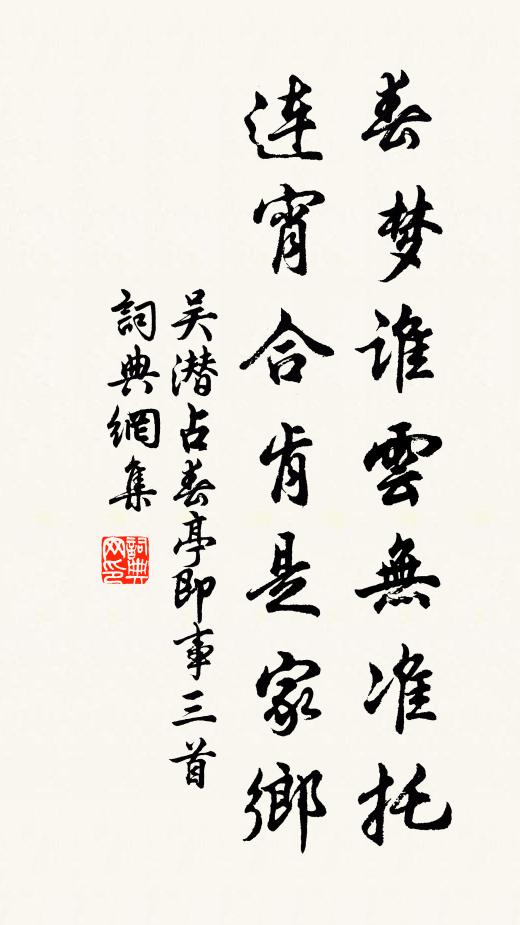 春梦谁雲無准托
連宵合肯是家鄉
吴潜占春亭即事三首
詞典網集
詞典
网印